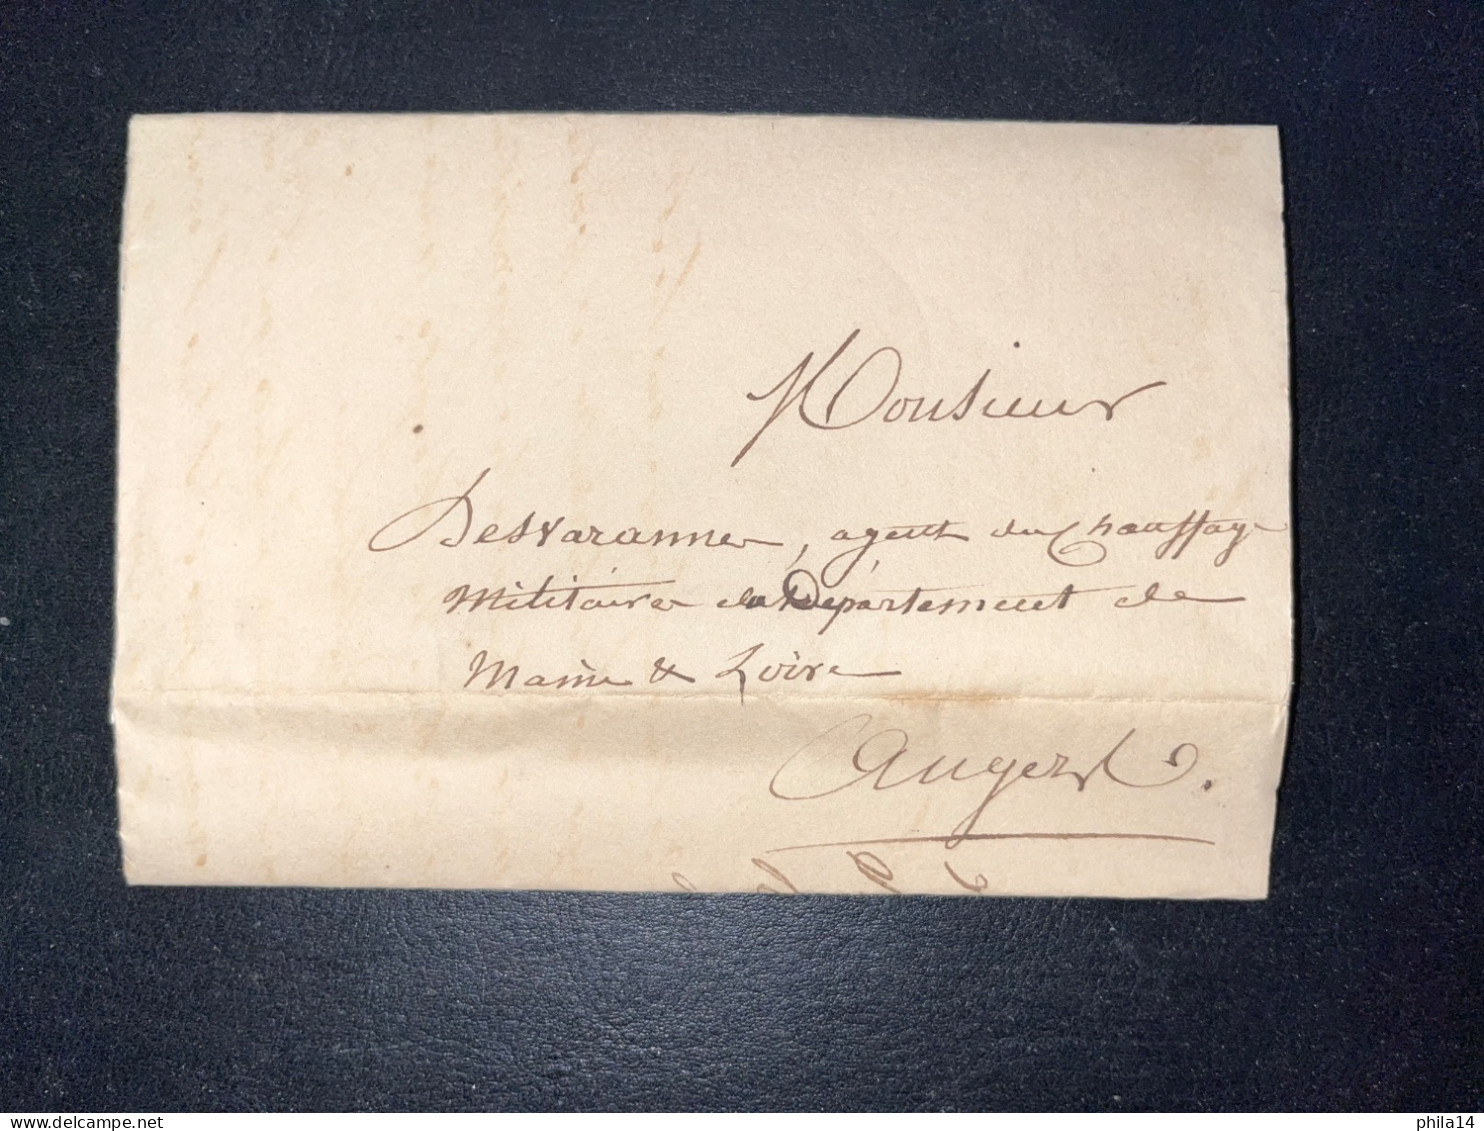 Monsieur
Desvarannes, agent du Chauffage
Militaire du Département de
Maine & Loire
Angers.
www.delcampe.net
phila14